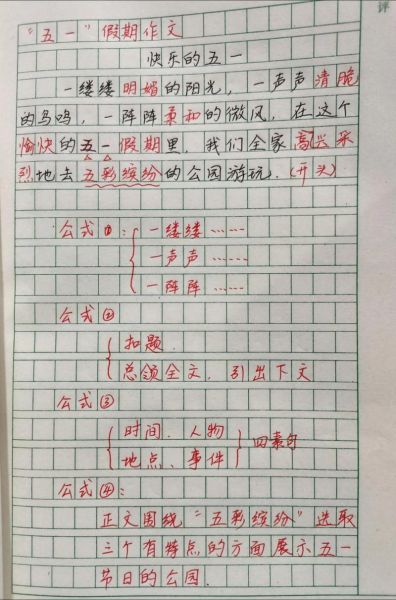 "五一"假期作文
快乐的五一
一缕缕明媚的阳光，一声声清脆
的鸟鸣，一阵阵柔和的微风，在这个
愉快的五一假期里，我们全家高兴采
烈地去五彩缤纷的公园游玩.(开头)
公式①: 一缕缕……
一声声……
一阵阵……
公式②
扣题.
总领全文，引出下文
公式③
时间、人物
地点、事件
四素句
公式④:
正文围绕"五彩缤纷"选取
三个有特点的方面展示五一
节日的公园.
评